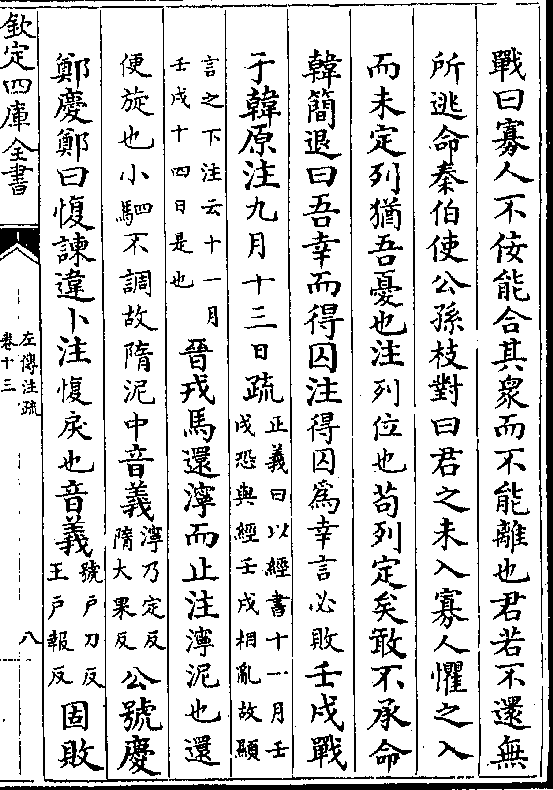 戰曰寡人不佞能合其衆而不能離也君若不還無
所逃命秦伯使公孫枝對曰君之未入寡人懼之入
而未定列猶吾憂也注列位也苟列定矣敢不承命
韓簡退曰吾幸而得囚注得囚爲幸言必敗壬戌戰
于韓原注九月十三日疏正義曰以經書十一月壬
戌恐與經壬戌相亂故顯
言之下注云十一月
壬戌十四日是也
晉戎馬還濘而止注濘泥也還
便旋也小駟不調故隋泥中音義濘乃定反
隋大果反
公號慶
鄭慶鄭曰愎諫違卜注愎戾也音義號户刀反
王户報反
固敗
欽定四庫全書
左傳注疏
卷十三
八